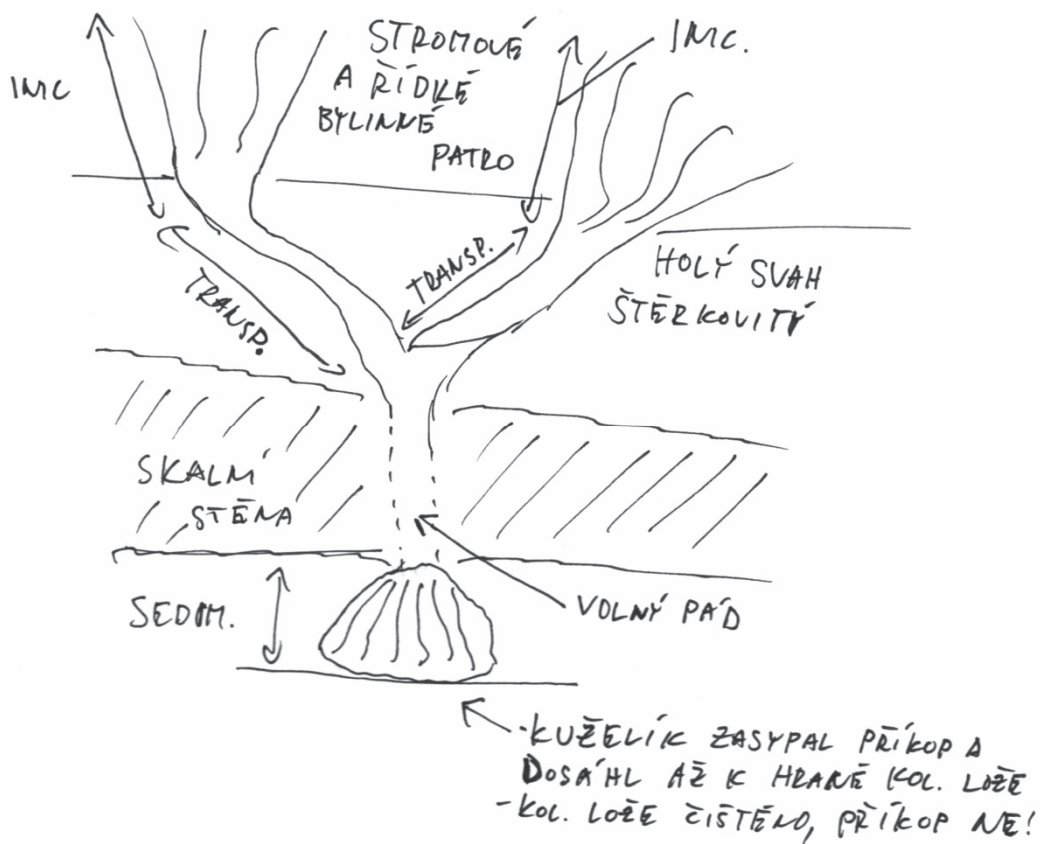 INIC
STROMOVÉ
A ŘÍDKÉ
BYLINNÉ
PATRO
INIC.
TRANSP.
TRANSP.
HOLÝ SVAH
ŠTĚRKOVITÝ
SKALNÍ
STĚNA
SEDIM.
VOLNÝ PÁD
-KUŽELÍK ZASYPAL PŘÍKOP A
DOSÁHL AŽ K HRANĚ KOL. LOŽE
-KOL. LOŽE ČIŠTĚNO, PŘÍKOP NE!